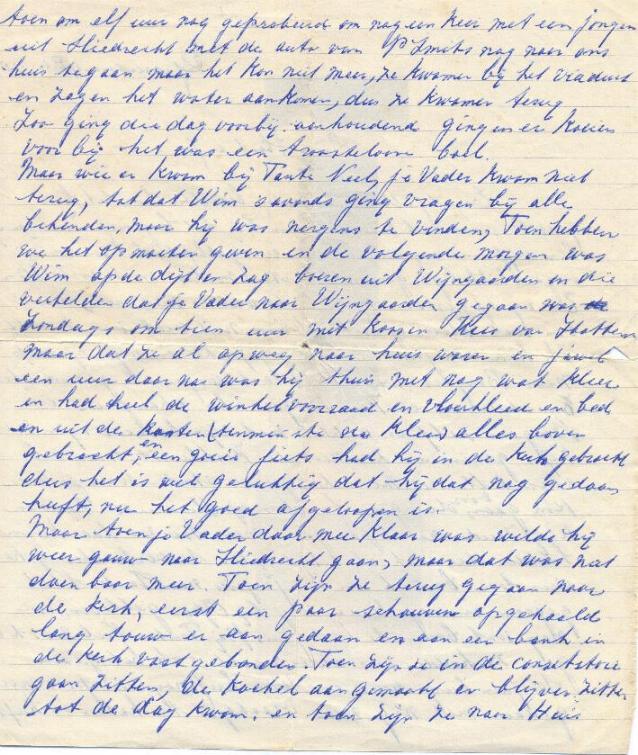 toen om elf uur nog geprobeerd om nog een keer met een jongen
uit Sliedrecht met de auto van P Smits nog naar ons
huis te gaan maar het kon niet meer, ze kwamen bij het viaduct
en zagen het water aankomen, dus ze kwamen terug
Zoo ging die dag voorbij. aanhoudend gingen er koeien
voorbij het was een troosteloose boel.
Maar wie er kwam bij Tante Neel, je Vader kwam niet
terug, tot dat Wim s'avonds ging vragen bij alle
bekenden, maar hij was nergens te vinden, Toen hebben
we het op moeten geven en de volgende morgen was
Wim op de dijk en zag boeren uit Wijngaarden en die
vertelden dat je Vader naar Wijngaarden gegaan was
Zondags om tien uur met Koosen Kees van
maar dat ze al op weg naar huis waren en jawel
een uur daar na was hij thuis met nog wat kleer
en had heel de winkelvoorraad en vloerkleed en bed
en uit de kasten (tenminste de kleren) alles boven
gebracht, en een goeie fiets had hij in de kerk gebracht
dus het is wel gelukkig dat hij dat nog gedaan
heeft, nu het goed afgeloopen is.
Maar toen je Vader daar mee klaar was wilde hij
weer gauw naar Sliedrecht gaan, maar dat was niet
doenbaar meer. Toen zijn ze terug gegaan naar
de kerk, eerst een paar schouwen opgehaald
lang touw er aan gedaan en aan een bank in
de kerk vastgebonden. Toen zijn ze in de consistorie
gaan zitten, de kachel aangemaakt en blijven zitten
tot de dag kwam. en toen zijn ze naar Huis